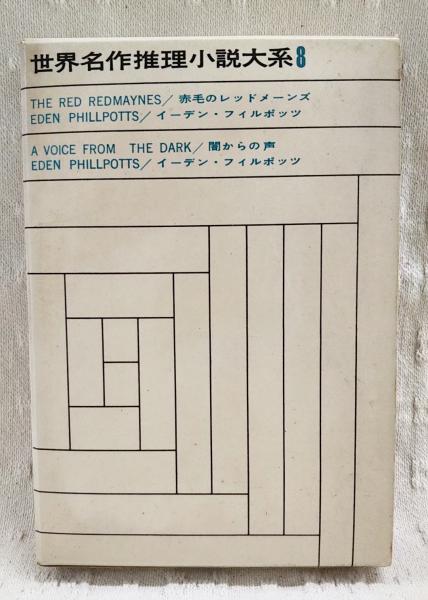 世界名作推理小説大系8
THE RED REDMAYNES／赤毛のレッドメーンズ
EDEN PHILLPOTTS／イーデン・フィルポッツ
A VOICE FROM THE DARK／闇からの声
EDEN PHILLPOTTS／イーデン・フィルポッツ